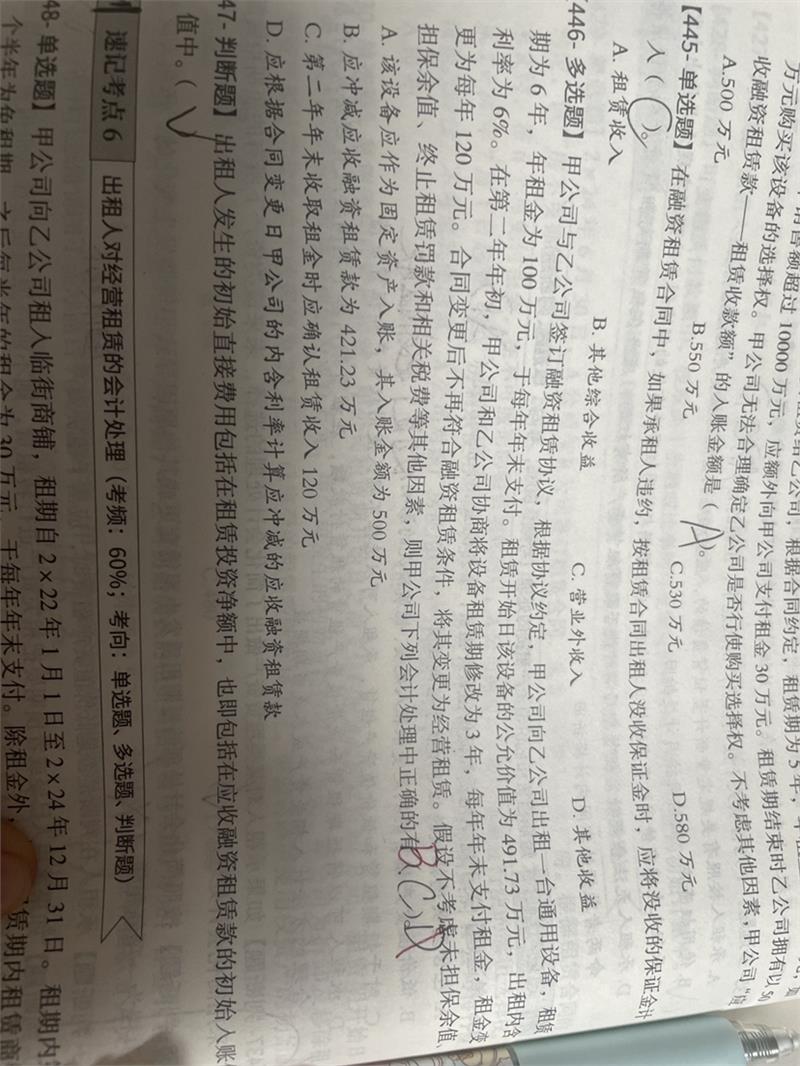 万元购买该设备的选择权。甲公司无法合理确定乙公司是否行使购买选择权。不考虑其他因素,甲公司“应
收融资租赁款——租赁收款额”的入账金额是( A )。
A.500 万元 B.550 万元 C.530 万元 D.580 万元
【445-单选题】在融资租赁合同中,如果承租人违约,按租赁合同出租人没收保证金时,应将没收的保证金计
入( C )。
A. 租赁收入 B. 其他综合收益 C. 营业外收入 D. 其他收益
【446-多选题】甲公司与乙公司签订融资租赁协议,根据协议约定,甲公司向乙公司出租一台通用设备,租赁
期为 6 年,年租金为 100 万元,于每年年末支付。租赁开始日该设备的公允价值为 491.73 万元,出租内含
利率为 6%。在第二年年初,甲公司和乙公司协商将设备租赁期修改为 3 年,每年年末支付租金,租金变
更为每年 120 万元。合同变更后不再符合融资租赁条件,将其变更为经营租赁。假设不考虑未担保余值、
担保余值、终止租赁罚款和相关税费等其他因素,则甲公司下列会计处理中正确的有( BCD
A. 该设备应作为固定资产入账,其入账金额为 500 万元
B. 应冲减应收融资租赁款为 421.23 万元
C. 第二年年末收取租金时应确认租赁收入 120 万元
D. 应根据合同变更日甲公司的内含利率计算应冲减的应收融资租赁款
47-判断题】出租人发生的初始直接费用包括在租赁投资净额中,也即包括在应收融资租赁款的初始入账
值中。( √
速记考点 6 出租人对经营租赁的会计处理(考频:60%;考向:单选题、多选题、判断题)
48-单选题】甲公司向乙公司租入临街商铺,租期自 2×22 年 1 月 1 日至 2×24 年 12 月 31 日。租期内
个半年为免租期,之后每半年的租金为 30 万元,于每年年末支付。除租金外, 赁期内租赁商